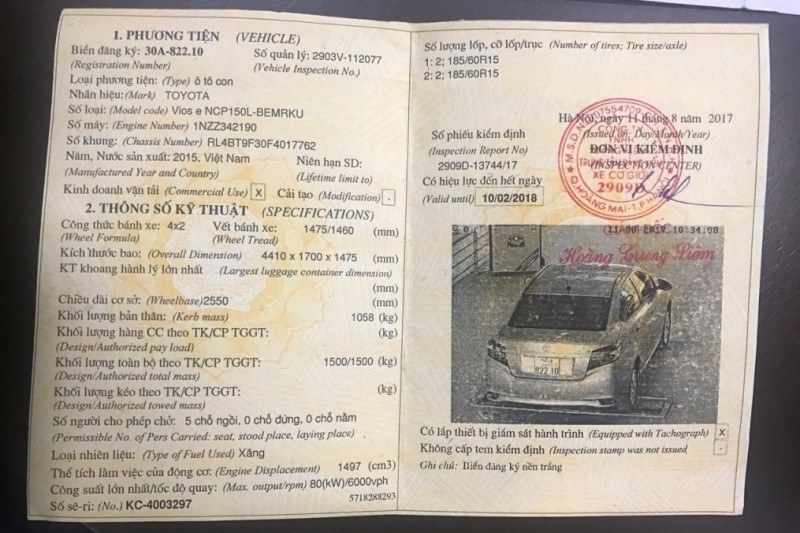 1. PHƯƠNG TIỆN (VEHICLE)
Biển đăng ký: 30A-822.10 Số quản lý: 2903V-112077
(Registration Number) (Vehicle Inspection No.)
Loại phương tiện: (Type) ô tô con
Nhãn hiệu: (Mark) TOYOTA
Số loại: (Model code) Vios e NCP150L-BEMRKU
Số máy: (Engine Number) 1NZZ342190
Số khung: (Chassis Number) RL4BT9F30F4017762
Năm, Nước sản xuất: 2015, Việt Nam Niên hạn SD:
(Manufactured Year and Country) (Lifetime limit to)
Kinh doanh vận tải (Commercial Use) X Cải tạo (Modification) -
2. THÔNG SỐ KỸ THUẬT (SPECIFICATIONS)
Công thức bánh xe: 4x2 Vết bánh xe: 1475/1460 (mm)
(Wheel Formula) (Wheel Tread)
Kích thước bao: (Overall Dimension) 4410 x 1700 x 1475 (mm)
KT khoang hành lý lớn nhất (Largest luggage container dimension)
(mm)
Chiều dài cơ sở: (Wheelbase) 2550 (mm)
Khối lượng bản thân: (Kerb mass) 1058 (kg)
Khối lượng hàng CC theo TK/CP TGGT: (kg)
(Design/Authorized pay load)
Khối lượng toàn bộ theo TK/CP TGGT: 1500/1500 (kg)
(Design/Authorized total mass)
Khối lượng kéo theo TK/CP TGGT: (kg)
(Design/Authorized towed mass)
Số người cho phép chở: 5 chỗ ngồi, 0 chỗ đứng, 0 chỗ nằm
(Permissible No. of Pers Carried: seat, stood place, laying place)
Loại nhiên liệu: (Type of Fuel Used) Xăng
Thể tích làm việc của động cơ: (Engine Displacement) 1497 (cm3)
Công suất lớn nhất/tốc độ quay: (Max. output/rpm) 80(kW)/6000vph
5718288293
Số sê-ri: (No.) KC-4003297
Số lượng lốp, cỡ lốp/trục (Number of tires; Tire size/axle)
1: 2; 185/60R15
2: 2; 185/60R15
Hà Nội, ngày 11 tháng 8 năm 2017
Số phiếu kiểm định (Issued on: Day/Month/Year)
(Inspection Report No) ĐƠN VỊ KIỂM ĐỊNH
2909D-13744/17 (INSPECTION CENTER)
XE CƠ GIỚI
2909D
Có hiệu lực đến hết ngày
(Valid until) 10/02/2018
11-08-2017 10:34:08
Hoàng Trung Liêm
822.10
Có lắp thiết bị giám sát hành trình (Equipped with Tachograph) X
Không cấp tem kiểm định (Inspection stamp was not issued -
Ghi chú: Biển đăng ký nền trắng